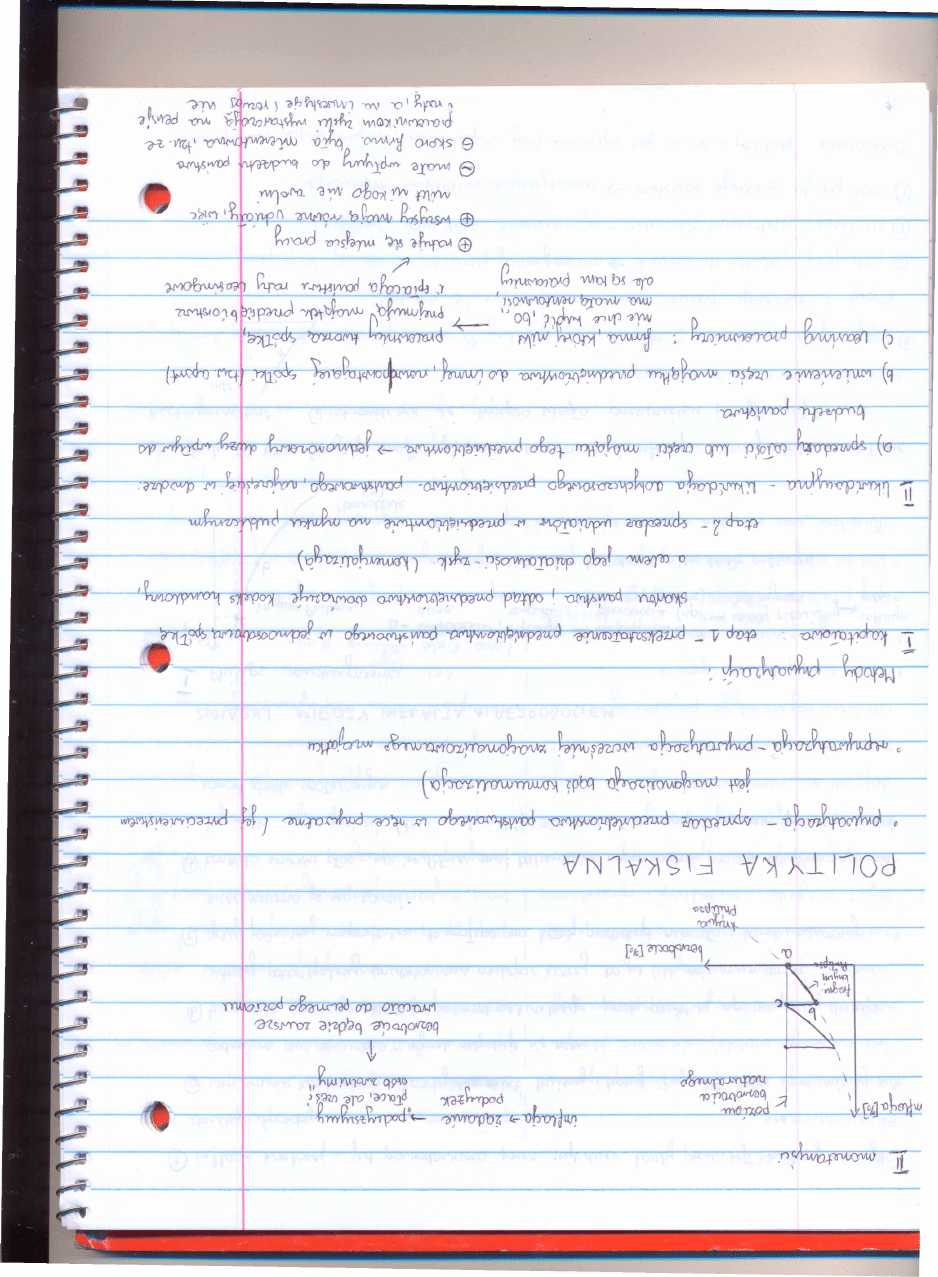 II monetaryści
inflacja [%]
poziom
bezrobocia
naturalnego
inflacja → żądanie → "podwyższymy
podwyżek płace, ale część
osób zwolnimy"
bezrobocie będzie zawsze
wracało do pewnego poziomu
c
b
a
krzywej
Philipsa
bezrobocie [%]
krzywa
Philipsa
POLITYKA FISKALNA
• prywatyzacja - sprzedaż przedsiębiorstwa państwowego w ręce prywatne (jej przeciwieństwem
jest nacjonalizacja bądź komunalizacja)
• reprywatyzacja - prywatyzacja wcześniej znacjonalizowanego majątku
Metody prywatyzacji:
I kapitałowa : etap 1 - przekształcenie przedsiębiorstwa państwowego w jednoosobową spółkę
skarbu państwa ; odtąd przedsiębiorstwo obowiązuje kodeks handlowy,
a celem jego działalności - zysk (komercjalizacja)
etap 2 - sprzedaż udziałów w przedsiębiorstwie na rynku publicznym
II likwidacyjna - likwidacja dotychczasowego przedsiębiorstwa państwowego, najczęściej w drodze:
a) sprzedaży całości lub części majątku tego przedsiębiorstwa → jednorazowy duży wpływ do
budżetu państwa
b) wniesienie części majątku przedsiębiorstwa do innej, nowopowstającej spółki (tzw aport)
c) Leasing pracowniczy : firma, której nikt → pracownicy tworzą spółkę,
nie chce kupić, bo przejmują majątek przedsiębiorstwa
ma małą rentowność, i spłacają państwu raty leasingowe
ale są tam pracownicy
⊕ ratuje się miejsca pracy
⊕ wszyscy mają równe udziały, więc
nikt nikogo nie zwolni
⊖ małe wpływy do budżetu państwa
⊖ skoro firma była nierentowna, tzn. że
pracownikom zysku wystarczają na pensje
i raty, a na inwestycje i rozwój nie